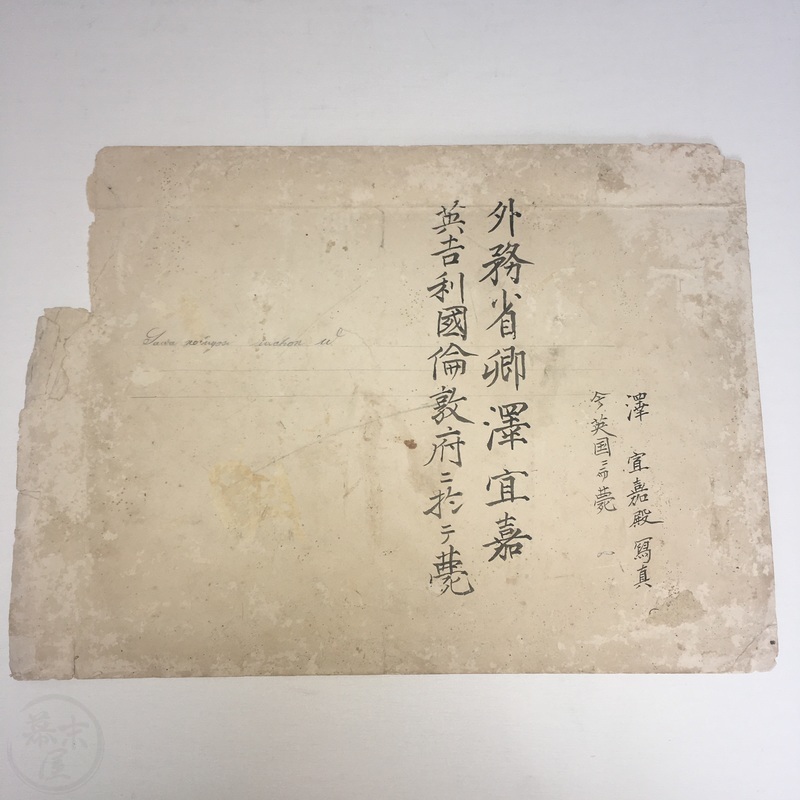 澤 宜嘉殿 寫真
今英国ニ而薨
外務省卿澤宜嘉
英吉利國倫敦府ニ於テ薨
Sawa
幕末屋